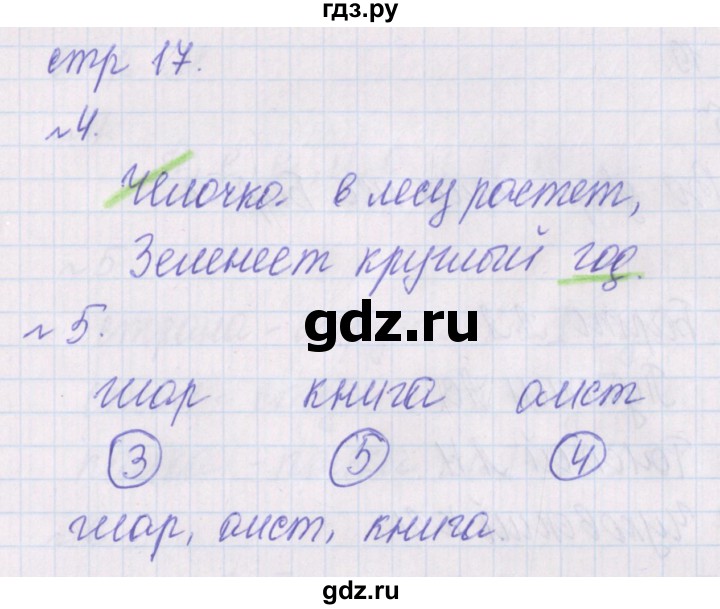 гдз.ру
стр 17.
№4.
Челочка в лесу растет,
Зеленеет круглый год.
gdz.ru
№5.
шар книга аист
3 5 4
шар, аист, книга
gdz.ru